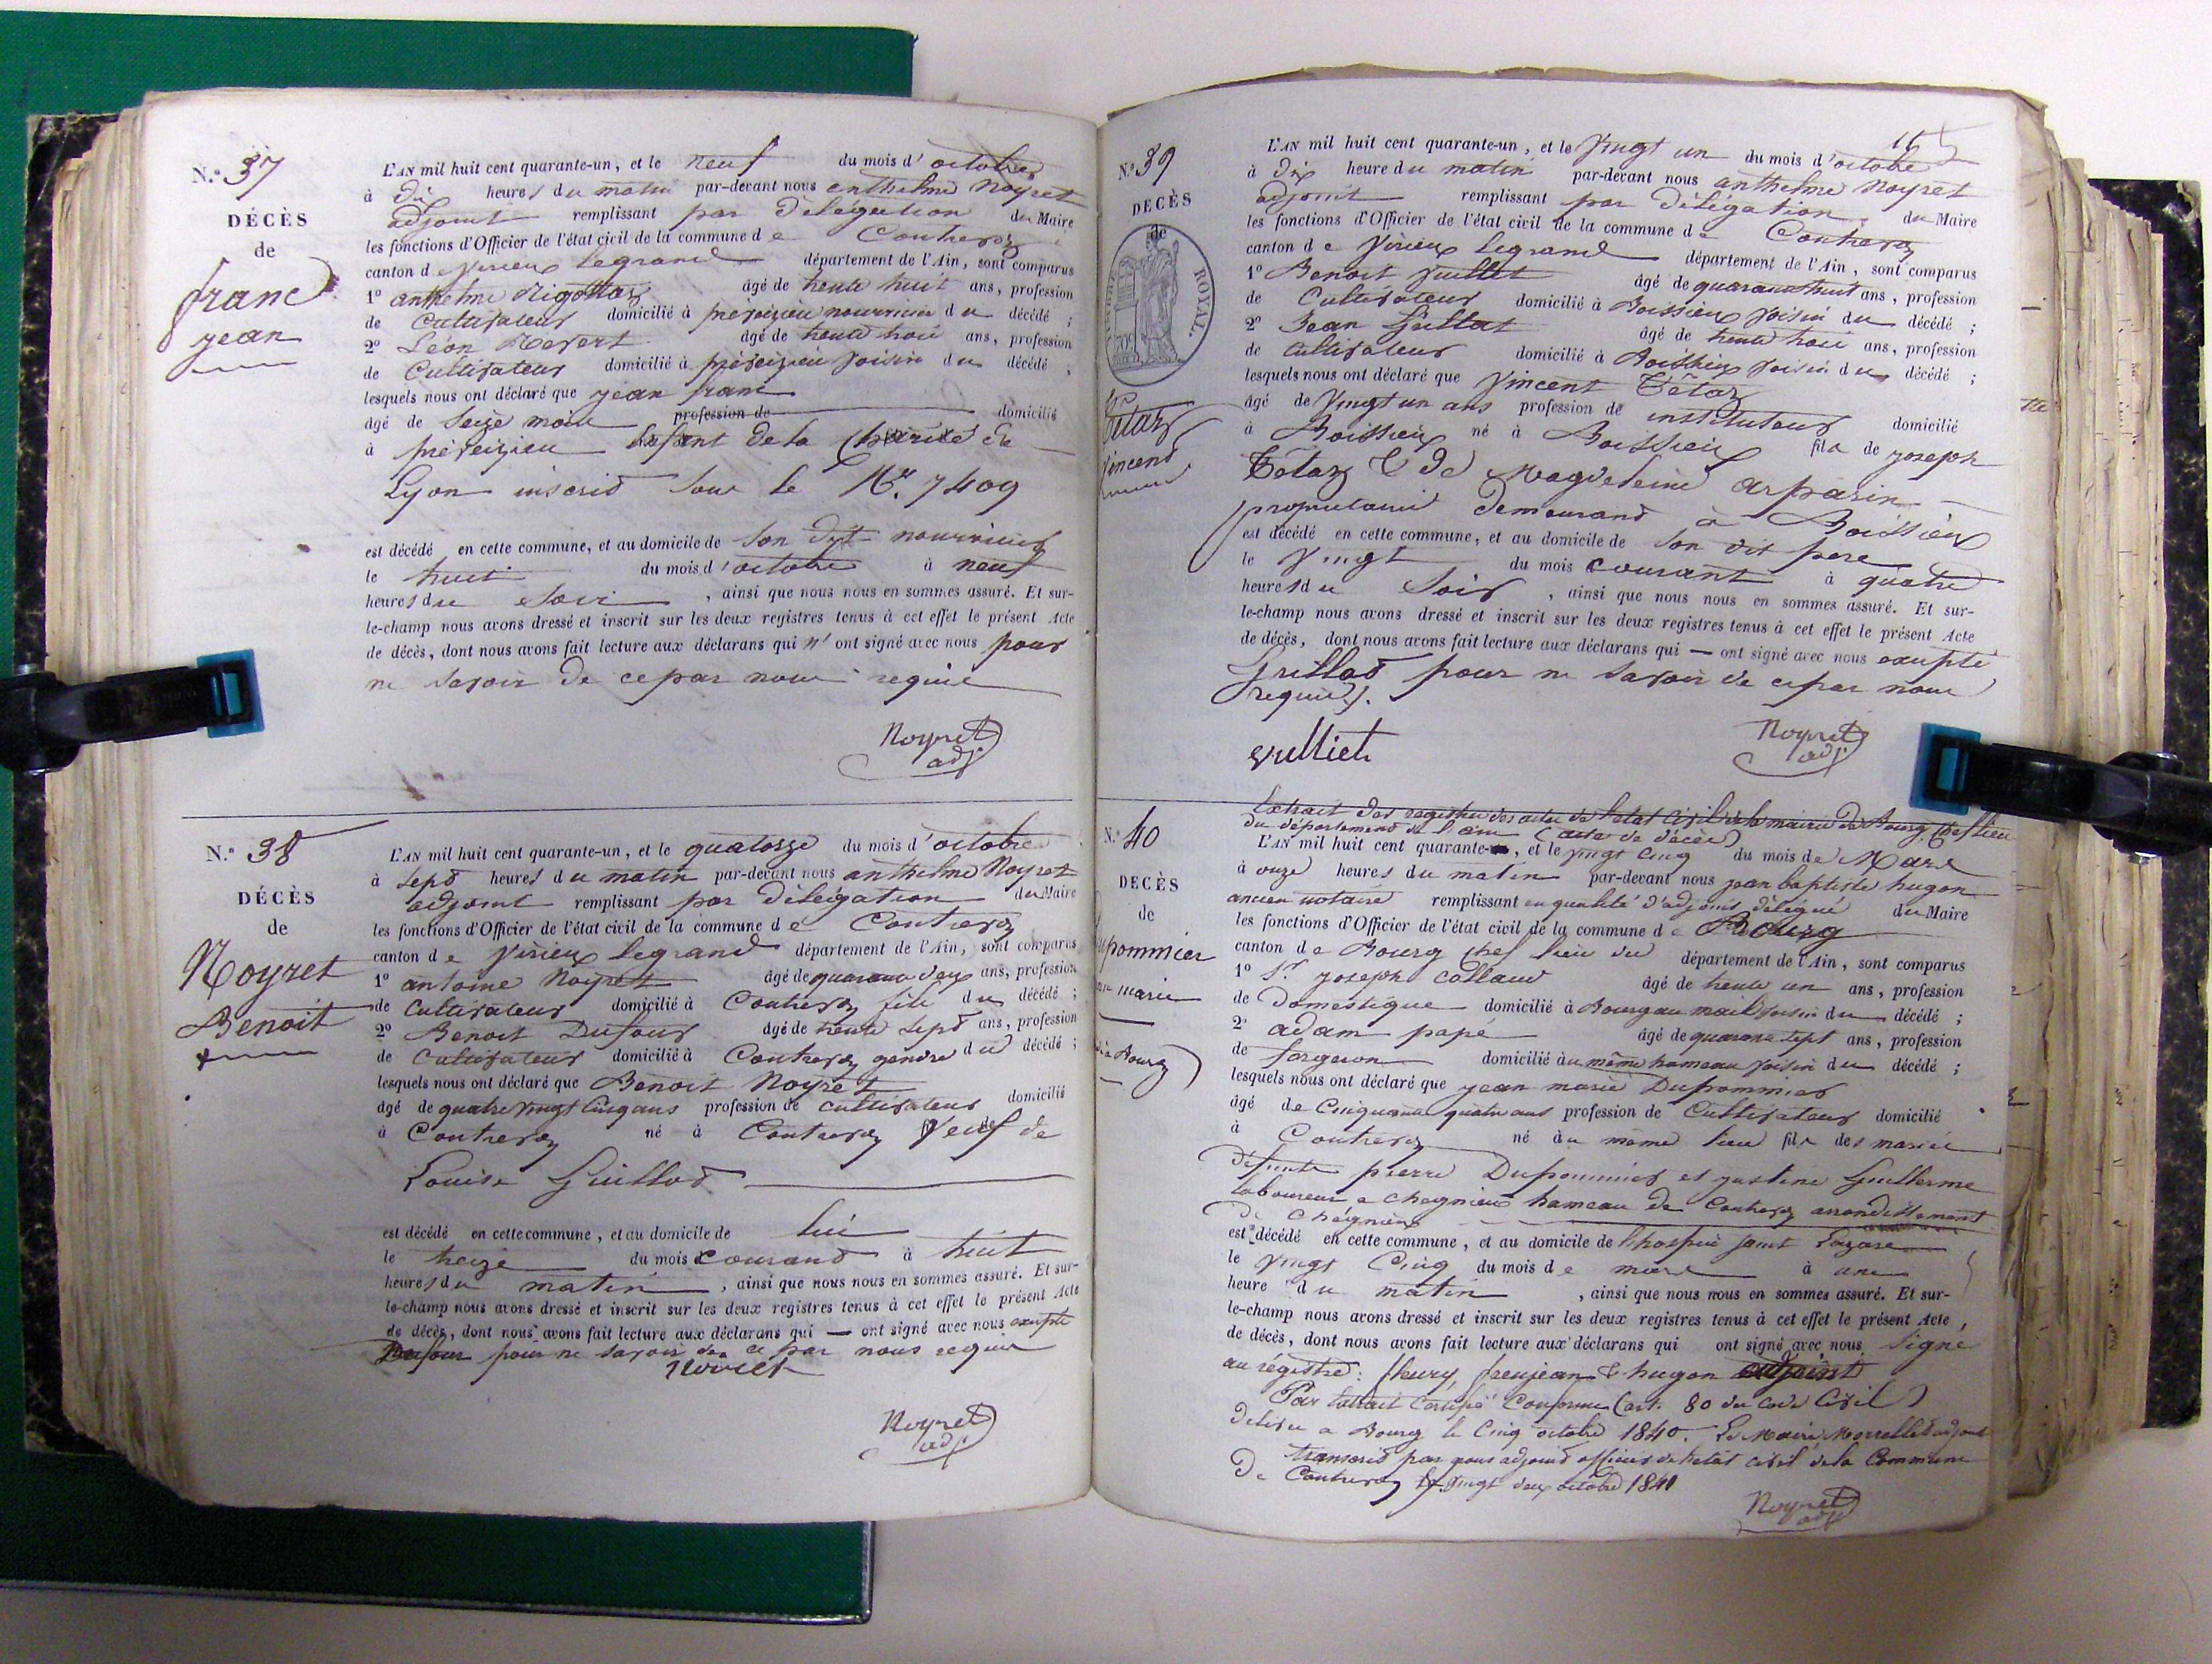 N.º 37
DÉCÈS
de
franc
jean
L'AN mil huit cent quarante-un, et le neuf du mois d'octobre
à dix heures du matin par-devant nous anthelme Noyret
adjoint remplissant par délégation du Maire
les fonctions d'Officier de l'état civil de la commune de Contrevoz
canton de virieux legrand département de l'Ain, sont comparus
1º anthelme Rigottaz âgé de trente huit ans, profession
de Cultivateur domicilié à préveizieu nourricier du décédé ;
2º Léon Revert âgé de trente trois ans, profession
de Cultivateur domicilié à préveizieu voisin du décédé ;
lesquels nous ont déclaré que jean franc
âgé de Seize mois profession de domicilié
à préveizieu Enfant de la Charité de
Lyon inscrit sous le Nº. 7409
est décédé en cette commune, et au domicile de son dyt nourricier
le huit du mois d'octobre à neuf
heures du soir , ainsi que nous nous en sommes assuré. Et sur-
le-champ nous avons dressé et inscrit sur les deux registres tenus à cet effet le présent Acte
de décès, dont nous avons fait lecture aux déclarans qui n'ont signé avec nous pour
ne savoir de ce par nous requis
Noyret
adj.
N.º 38
DÉCÈS
de
Noyret
Benoit
L'AN mil huit cent quarante-un, et le quatorze du mois d'octobre
à sept heures du matin par-devant nous anthelme Noyret
adjoint remplissant par délégation du Maire
les fonctions d'Officier de l'état civil de la commune de Contrevoz
canton de virieux legrand département de l'Ain, sont comparus
1º antoine Noyret âgé de quarante deux ans, profession
de Cultivateur domicilié à Contrevoz fils du décédé ;
2º Benoit Dufour âgé de trente sept ans, profession
de Cultivateur domicilié à Contrevoz gendre du décédé ;
lesquels nous ont déclaré que Benoit Noyret
âgé de quatre vingt cinq ans profession de cultivateur domicilié
à Contrevoz né à Contrevoz veuf de
Louise Guillod
est décédé en cette commune, et au domicile de lui
le treize du mois courand à huit
heures du matin , ainsi que nous nous en sommes assuré. Et sur-
le-champ nous avons dressé et inscrit sur les deux registres tenus à cet effet le présent Acte
de décès, dont nous avons fait lecture aux déclarans qui — ont signé avec nous excepté
Dufour pour ne savoir de ce par nous requis
Noyret
adj.
16
N.º 39
DÉCÈS
de
ROYAL.
Tétaz
Vincent
L'AN mil huit cent quarante-un, et le Vingt un du mois d'octobre
à dix heure du matin par-devant nous anthelme Noyret
adjoint remplissant par délégation du Maire
les fonctions d'Officier de l'état civil de la commune de Contrevoz
canton de virieux legrand département de l'Ain, sont comparus
1º Benoit Juillet âgé de quarante huit ans, profession
de Cultivateur domicilié à Boissieux voisin du décédé ;
2º Jean Guillot âgé de trente trois ans, profession
de Cultivateur domicilié à Boissieux voisin du décédé ;
lesquels nous ont déclaré que Vincent Tétaz
âgé de Vingt un ans profession de instituteur domicilié
à Boissieux né à Boissieux fils de joseph
Tétaz & de Magdeleine arparin
propriétaire demeurand à Boissieux
est décédé en cette commune, et au domicile de son dit pere
le Vingt du mois courant à quatre
heures du Soir , ainsi que nous nous en sommes assuré. Et sur-
le-champ nous avons dressé et inscrit sur les deux registres tenus à cet effet le présent Acte
de décès, dont nous avons fait lecture aux déclarans qui — ont signé avec nous excepté
Guillod pour ne savoir de ce par nous
requis.
Vulliet
Noyret
adj.
N.º 40
DÉCÈS
de
pommier
marie
à Bourg
Extrait des registres des actes de l'etat Civil de la mairie de Bourg Chef lieu
du département de l'ain (actes de décès)
L'AN mil huit cent quarante- , et le vingt cinq du mois de Mars
à onze heures du matin par-devant nous jean baptiste hugon
ancien notaire remplissant en qualité d'adjoint délégué du Maire
les fonctions d'Officier de l'état civil de la commune de Bourg
canton de Bourg chef lieu du département de l'Ain, sont comparus
1º Sr joseph Collaud âgé de trente un ans, profession
de Domestique domicilié à Bourg au mail voisin du décédé ;
2º adam papé âgé de quarante sept ans, profession
de forgeron domicilié au même hameau voisin du décédé ;
lesquels nous ont déclaré que jean marie Dupommier
âgé de Cinquante quatre ans profession de Cultivateur domicilié
à Contrevoz né au même lieu fils des mariés
défunts pierre Dupommier et justine Guillerme
laboureur a cheignieux hameau de Contrevoz arrondissement
de cheignieux
est décédé en cette commune, et au domicile de l'hospice saint Lazare
le vingt Cinq du mois de mars à une
heure du matin , ainsi que nous nous en sommes assuré. Et sur-
le-champ nous avons dressé et inscrit sur les deux registres tenus à cet effet le présent Acte,
de décès, dont nous avons fait lecture aux déclarans qui ont signé avec nous Signé
au régistre: fleury, frenjean & hugon adjoint
Par Extrait Certifié Conforme (art. 80 du Code Civil)
Délivré a Bourg le Cinq octobre 1840. Le Maire Morrellet adjoint
transcrit par nous adjoint officier de l'etat civil de la Commune
De Contrevoz le vingt deux octobre 1841
Noyret
adj.